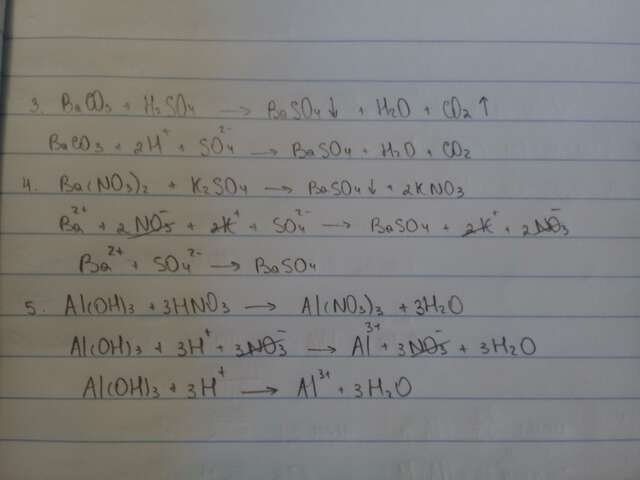 3. BaCO₃ + H₂SO₄ → BaSO₄↓ + H₂O + CO₂↑
BaCO₃ + 2H⁺ + SO₄²⁻ → BaSO₄ + H₂O + CO₂
4. Ba(NO₃)₂ + K₂SO₄ → BaSO₄↓ + 2KNO₃
Ba²⁺ + 2NO₃⁻ + 2K⁺ + SO₄²⁻ → BaSO₄ + 2K⁺ + 2NO₃⁻
Ba²⁺ + SO₄²⁻ → BaSO₄
5. Al(OH)₃ + 3HNO₃ → Al(NO₃)₃ + 3H₂O
Al(OH)₃ + 3H⁺ + 3NO₃⁻ → Al³⁺ + 3NO₃⁻ + 3H₂O
Al(OH)₃ + 3H⁺ → Al³⁺ + 3H₂O